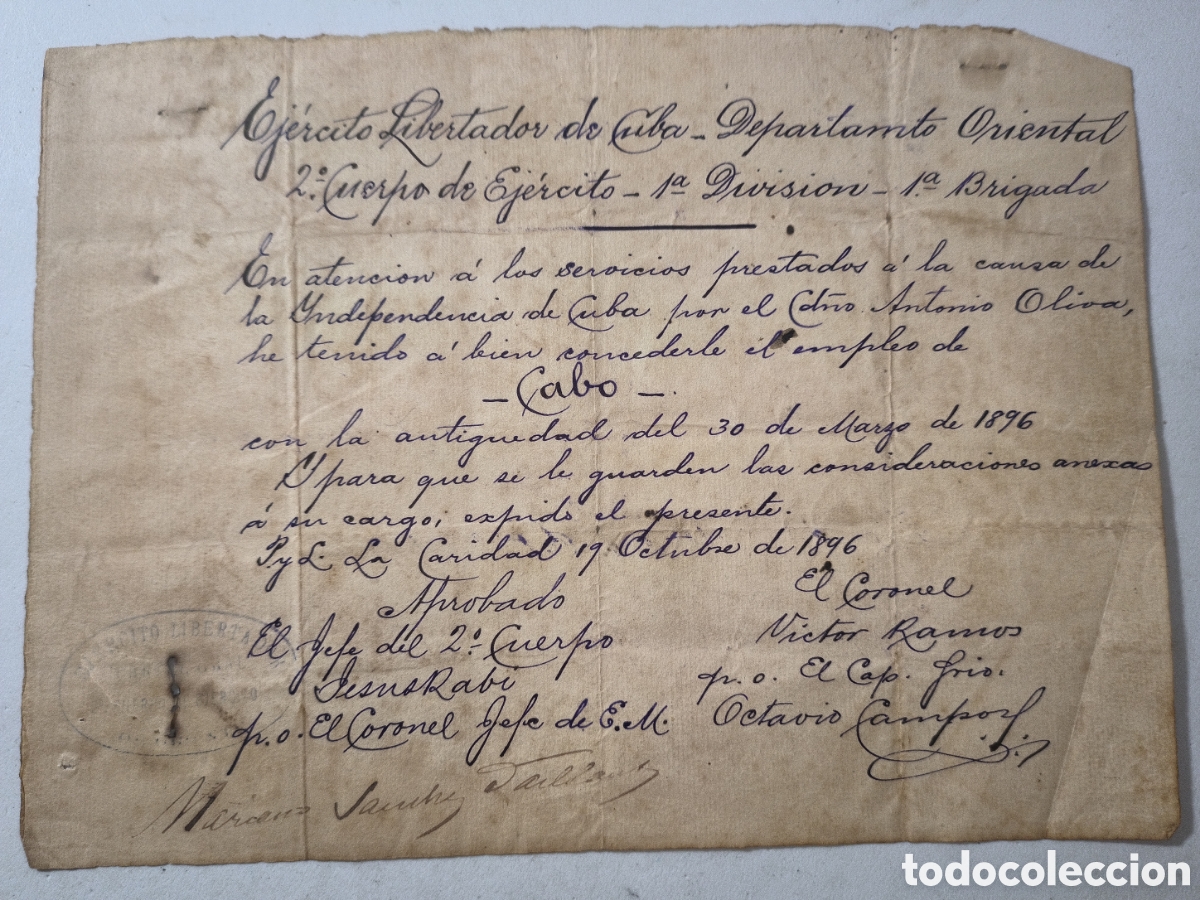 Ejército Libertador de Cuba - Departamto Oriental
2.º Cuerpo de Ejército - 1ª Division - 1.ª Brigada
En atencion á los servicios prestados á la causa de
la Yndependencia de Cuba por el Cdño Antonio Oliva,
he tenido á bien concederle el empleo de
- Cabo -
con la antiguedad del 30 de Marzo de 1896
Y para que se le guarden las consideraciones anexas
á su cargo, expido el presente.
P y L. La Caridad 19 Octubre de 1896
Aprobado
El Jefe del 2.º Cuerpo
Jesus Rabi
p.o. El Coronel Jefe de E.M.
Mariano Sanchez
El Coronel
Victor Ramos
p.o. El Cap. Srio.
Octavio Campos
CITO LIBERTA
todocoleccion